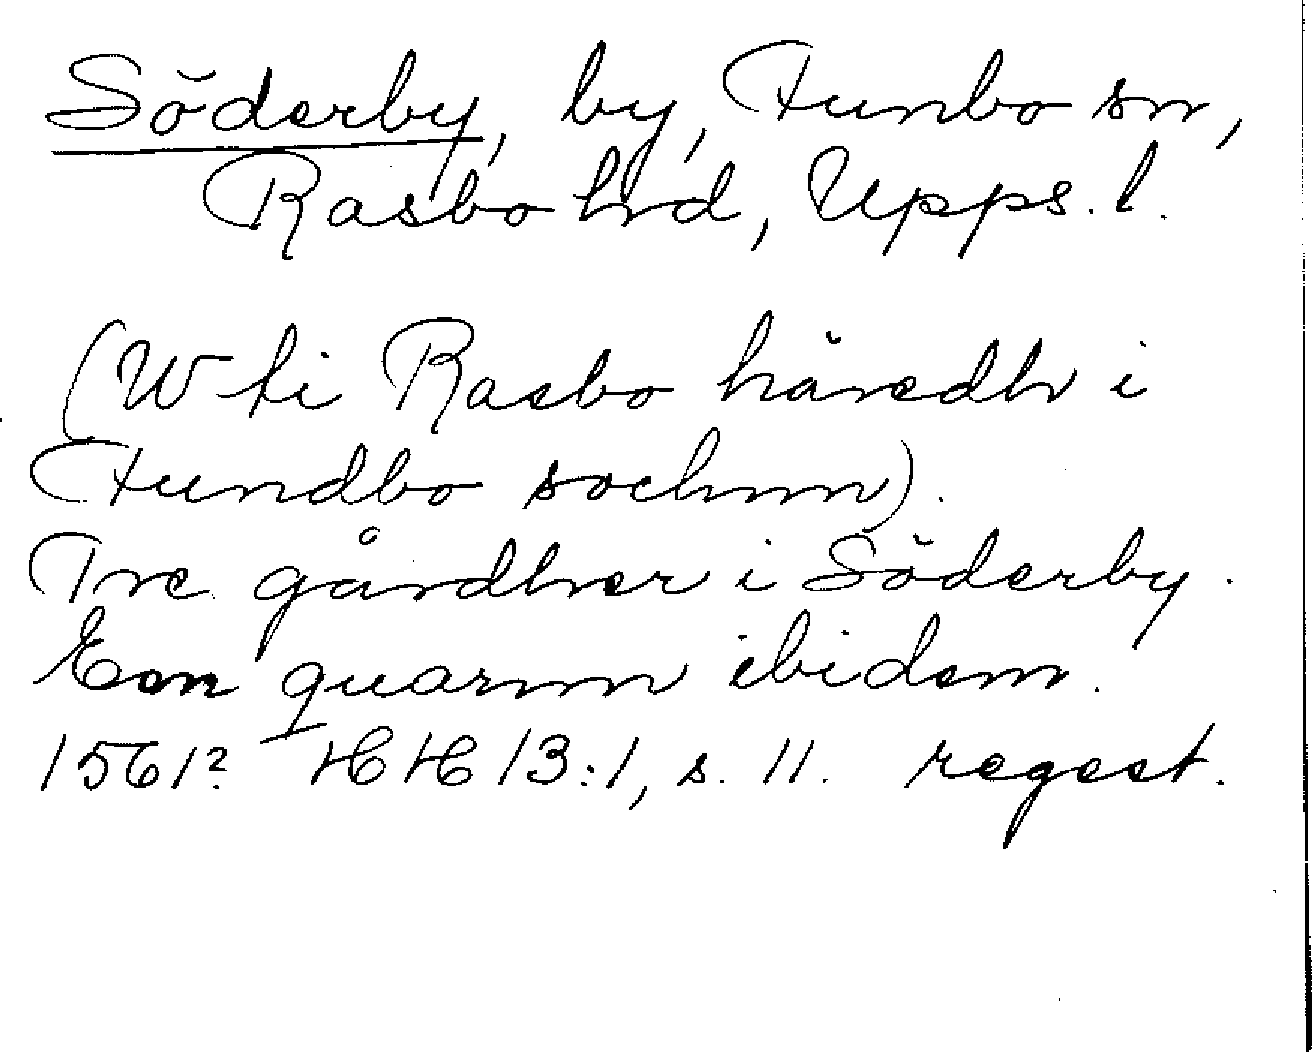 Söderby, by, Funbo sn,
Rasbo hrd, Upps. l.
(Wti Rasbo häredh i
Fundbo sochnn).
Tre gårdher i Söderby.
Een quarnn ibidem.
1561? HH 13:1, s. 11. regest.